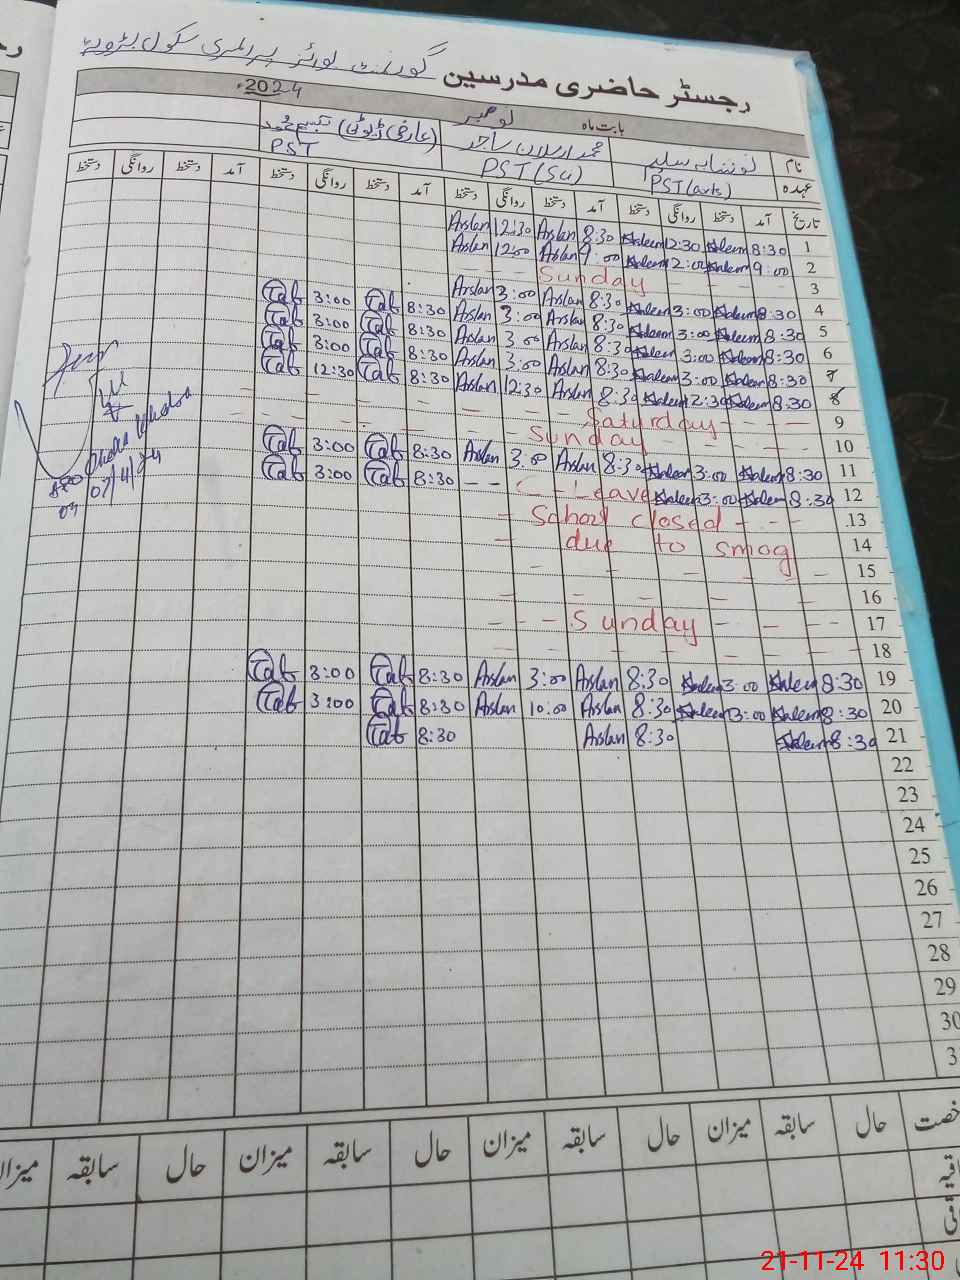 گورنمنٹ بوائز پرائمری سکول
رجسٹر حاضری مدرسین
بابت ماہ نومبر 2024ء
نام محمد ارسلان ساجد (عارضی ڈیوٹی)
عہدہ PST(arts) PST(Sci) PST
تاریخ آمد دستخط روانگی دستخط آمد دستخط روانگی دستخط آمد دستخط روانگی دستخط آمد دستخط روانگی دستخط
1 8:30 Haleem 12:30 Haleem 8:30 Arslan 12:30 Arslan
2 9:00 Haleem 2:00 Haleem 9:00 Arslan 12:00 Arslan
3 - - Sunday - - -
4 8:30 Haleem 3:00 Haleem 8:30 Arslan 3:00 Arslan 8:30 Tab 3:00 Tab
5 8:30 Haleem 3:00 Haleem 8:30 Arslan 3:00 Arslan 8:30 Tab 3:00 Tab
6 8:30 Haleem 3:00 Haleem 8:30 Arslan 3:00 Arslan 8:30 Tab 3:00 Tab
7 8:30 Haleem 3:00 Haleem 8:30 Arslan 3:00 Arslan 8:30 Tab 12:30 Tab
8 8:30 Haleem 12:30 Haleem 8:30 Arslan 12:30 Arslan
9 - - - Saturday - - -
10 - - - Sunday - -
11 8:30 Haleem 3:00 Haleem 8:30 Arslan 3:00 Arslan 8:30 Tab 3:00 Tab
12 8:30 Haleem 3:00 Haleem - - C - Leave 8:30 Tab 3:00 Tab
13 - School closed - - -
14 - due to smog
15 - - - - - - -
16 - - - - -
17 - - - Sunday - - -
18 - - - - - - -
19 8:30 Haleem 3:00 Haleem 8:30 Arslan 3:00 Arslan 8:30 Tab 3:00 Tab
20 8:30 Haleem 3:00 Haleem 8:30 Arslan 10:00 Arslan 8:30 Tab 3:00 Tab
21 8:30 Haleem 8:30 Arslan 8:30 Tab
22
23
24
25
26
27
28
29
30
3
حال سابقہ میزان حال سابقہ میزان حال سابقہ میزان حال سابقہ میزان
21-11-24 11:30